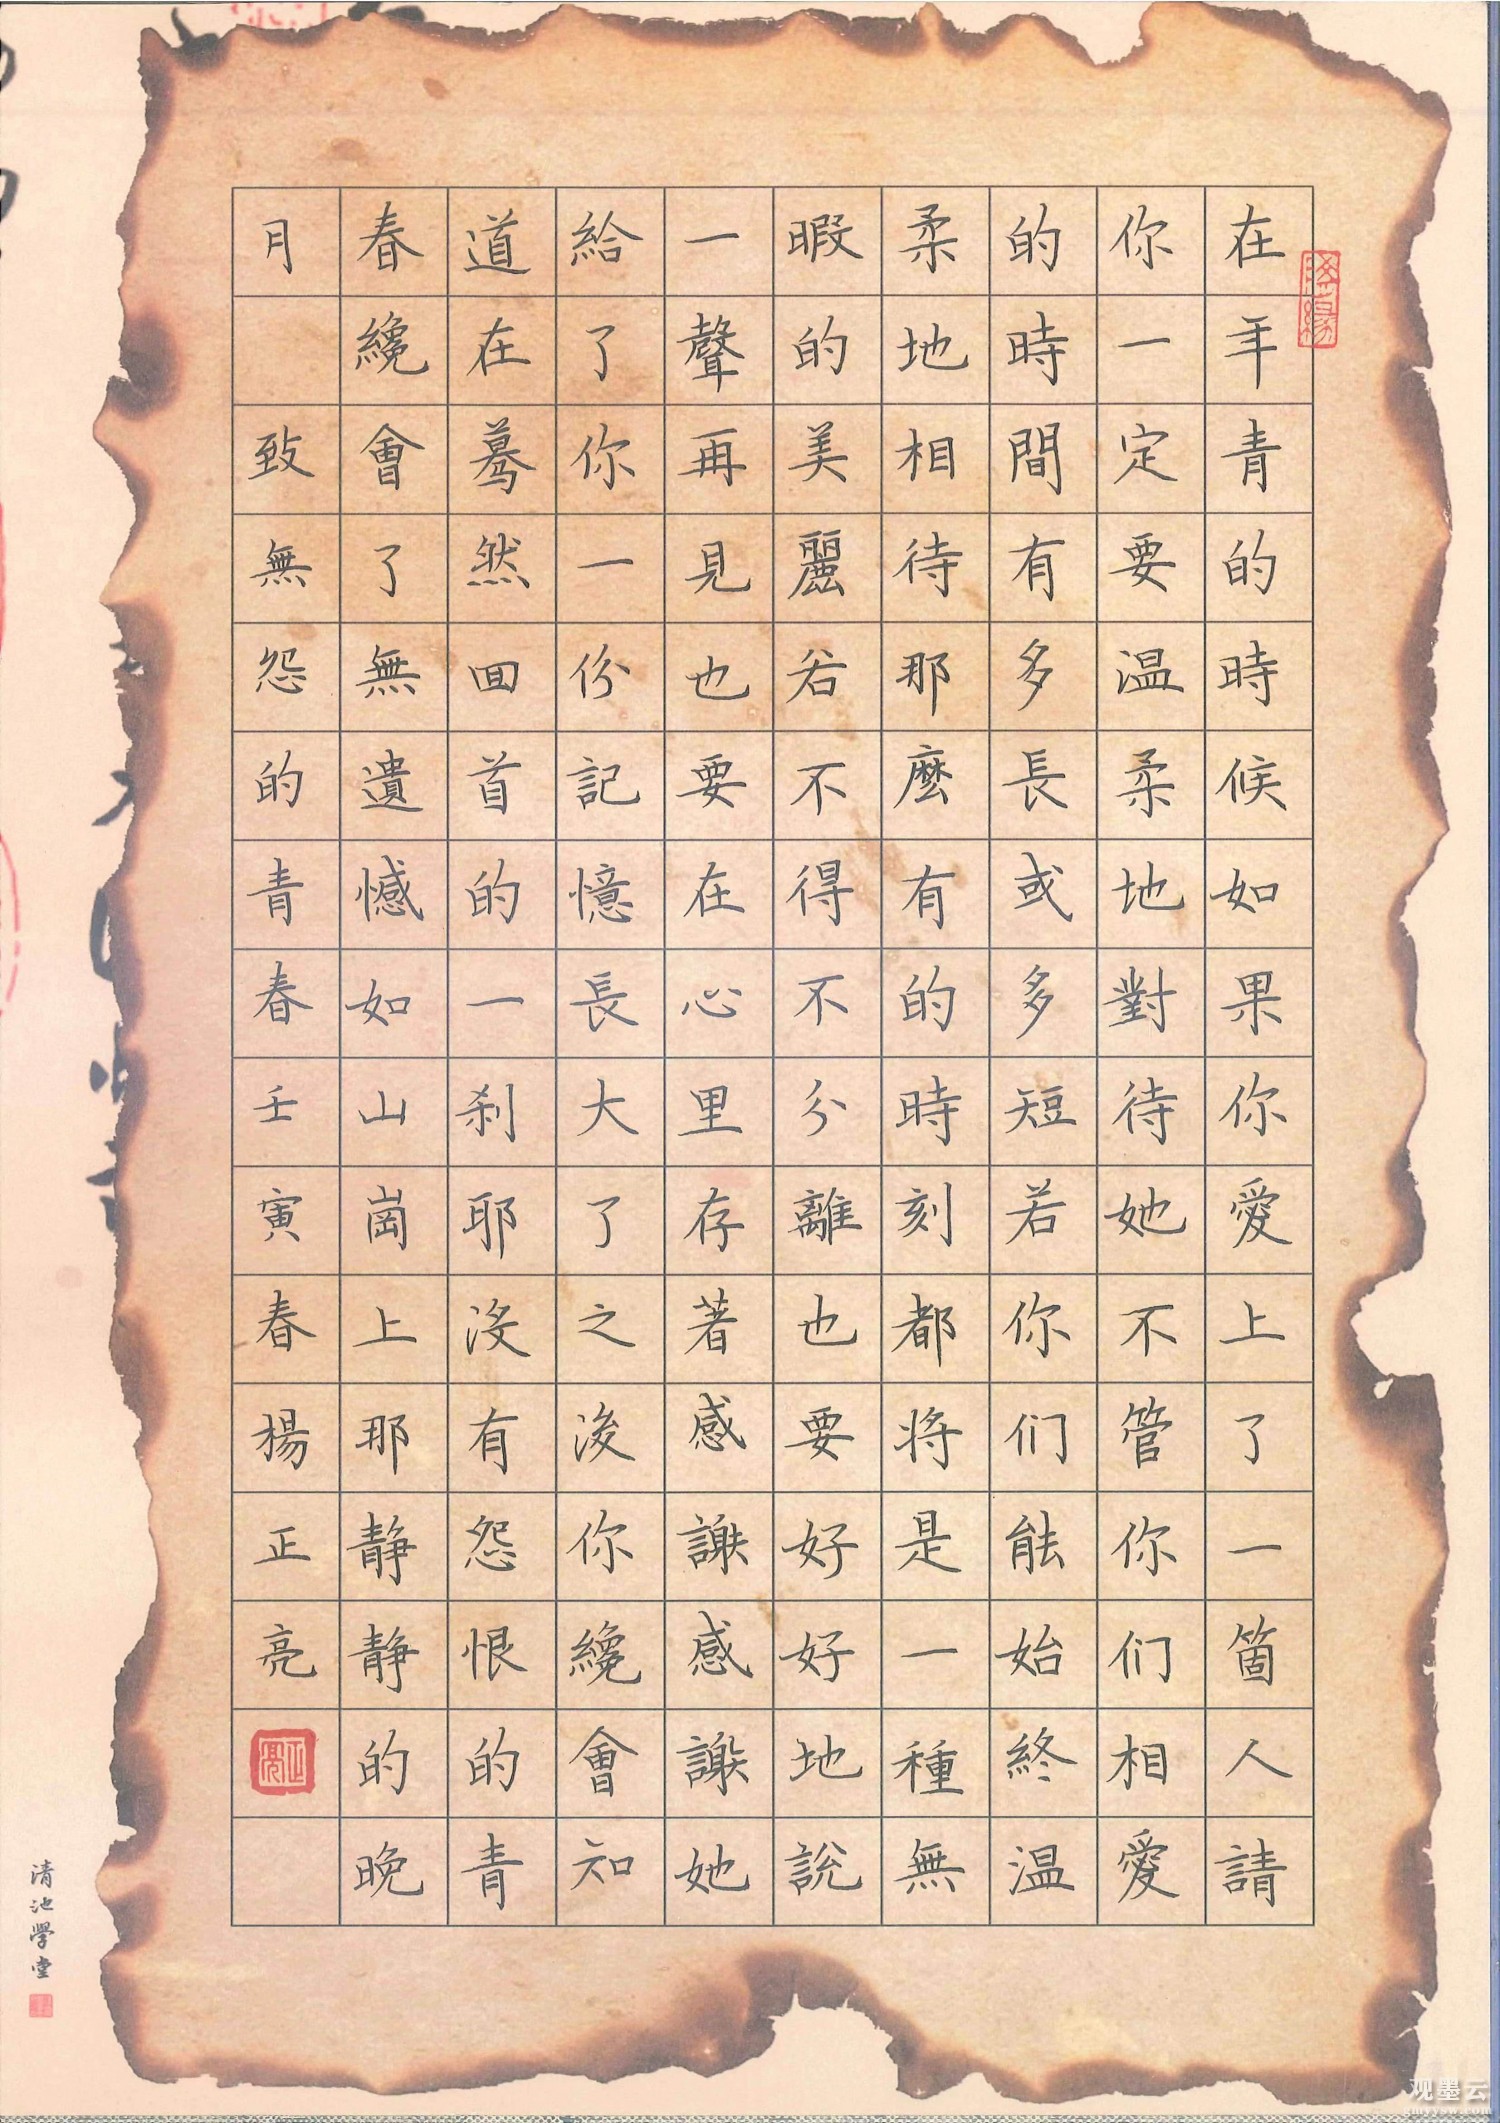 在年青的時候如果你愛上了一箇人請
你一定要温柔地對待她不管你们相愛
的時間有多長或多短若你们能始終温
柔地相待那麼有的時刻都将是一種無
暇的美麗若不得不分離也要好好地説
一聲再見也要在心里存著感謝感謝她
給了你一份記憶長大了之後你纔會知
道在驀然回首的一刹耶没有怨恨的青
春纔會了無遺憾如山崗上那静静的晚
月 致無怨的青春壬寅春楊正亮
正亮
清池學堂
观墨云
gmyysw.com